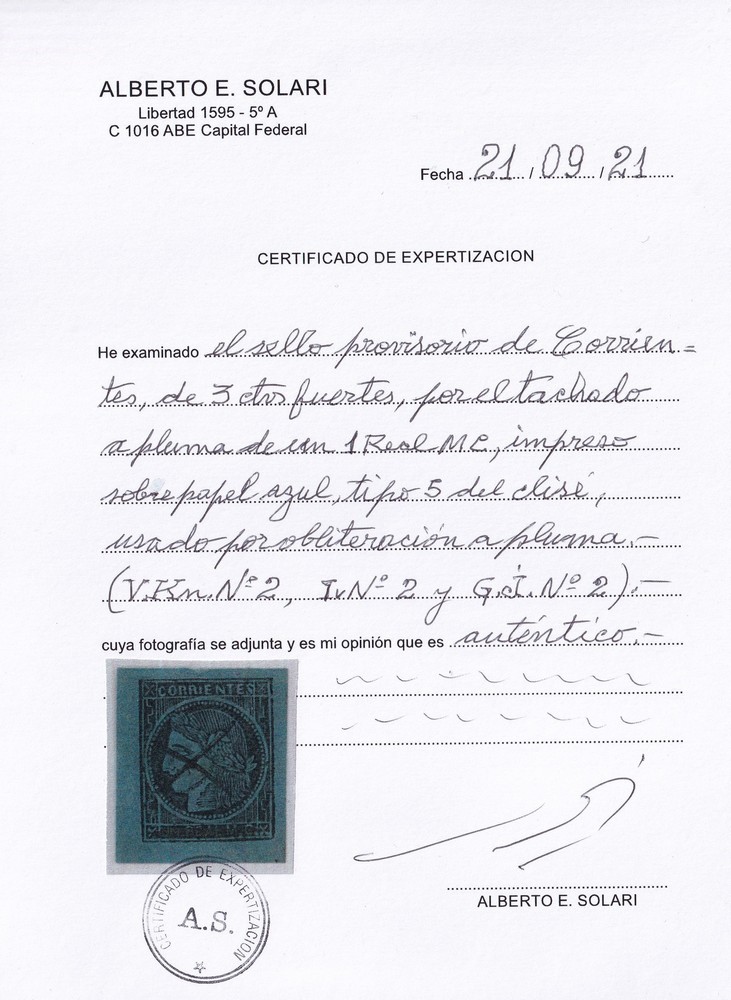 ALBERTO E. SOLARI
Libertad 1595 - 5º A
C 1016 ABE Capital Federal
Fecha 21 / 09 / 21
CERTIFICADO DE EXPERTIZACION
He examinado el sello provisorio de Corrien=
tes, de 3 ctvs fuertes, por el tachado
a pluma de un 1 Real MC, impreso
sobre papel azul, tipo 5 del clisé,
usado por obliteración a pluma.-
(V.Kn.Nº 2, Iv.Nº 2 y G.J.Nº 2).-
cuya fotografía se adjunta y es mi opinión que es auténtico.-
CORRIENTES
CERTIFICADO DE EXPERTIZACION
A.S.
ALBERTO E. SOLARI